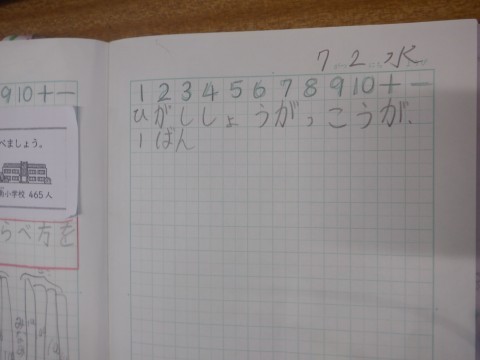 7 2 水
1 2 3 4 5 6 7 8 9 10 + −
ひがししょうがっこうが、
1ばん
9 10 + −
べましょう。
小学校 465人
らべ方を